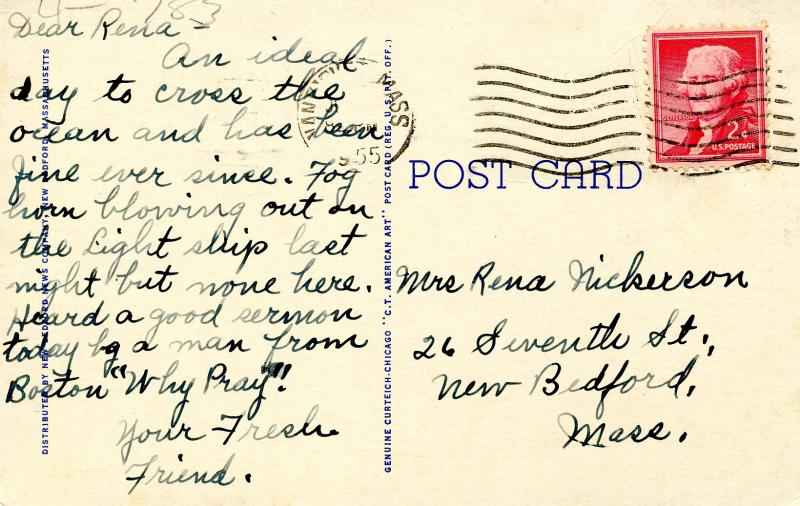 Dear Rena -
An ideal
day to cross the
ocean and has been
fine ever since. Fog
horn blowing out on
the Light ship last
night but none here.
Heard a good sermon
today by a man from
Boston "Why Pray"!
Your Fresh
Friend.
DISTRIBUTED BY NEW BEDFORD NEWS COMPANY, NEW BEDFORD, MASSACHUSETTS
GENUINE CURTEICH-CHICAGO "C.T. AMERICAN ART" POST CARD (REG. U.S. PAT. OFF.)
MASS
1955
JEFFERSON
2¢
U.S. POSTAGE
POST CARD
Mrs Rena Nickerson
26 Seventh St.,
New Bedford,
Mass.